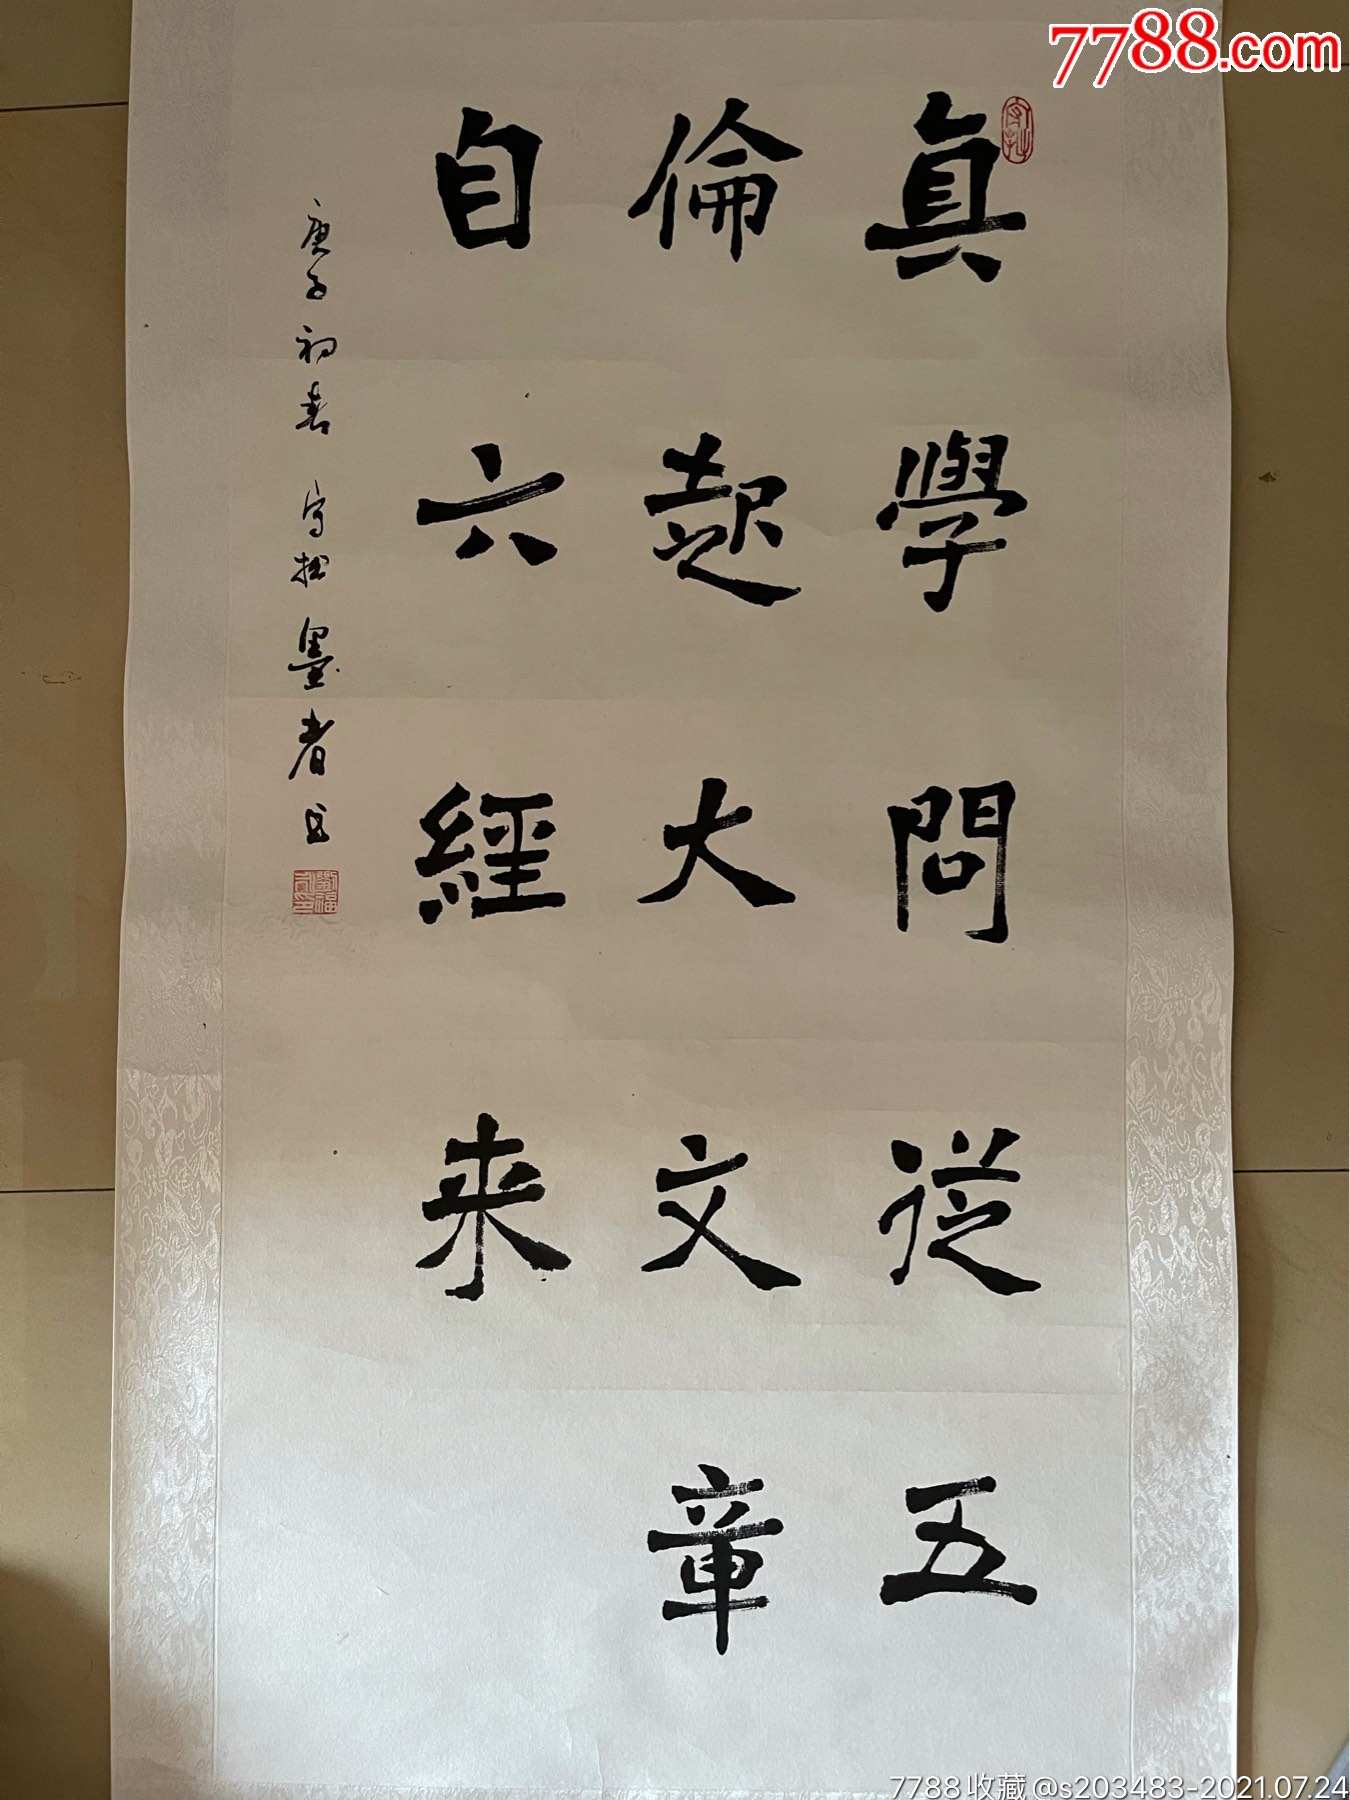 7788.com
真學問從五
倫起大文章
自六經来
庚子初春 守拙墨者書
7788收藏@s203483-2021.07.24